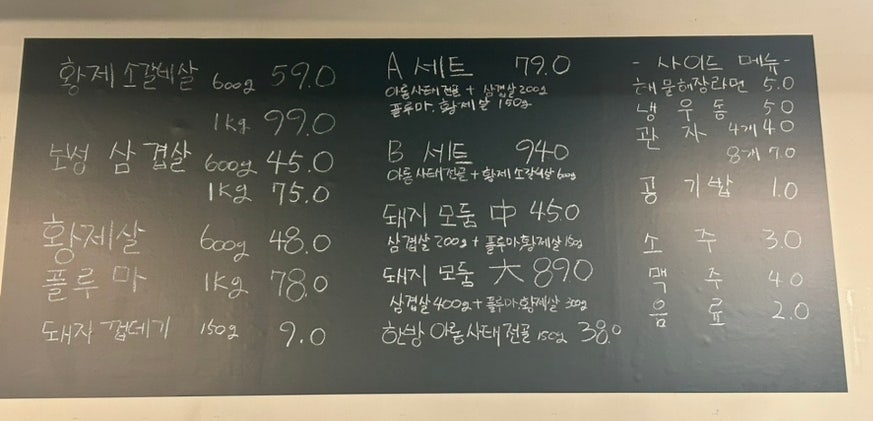 황제 소갈비살 600g 59.0
1kg 99.0
보성 삼겹살 600g 45.0
1kg 75.0
황제살 600g 48.0
플루마 1kg 78.0
돼지 껍데기 150g 9.0
A 세트 79.0
아롱사태전골 + 삼겹살 200g
플루마, 황제살 150g
B 세트 94.0
아롱사태전골 + 황제 소갈비살 600g
돼지 모둠 中 45.0
삼겹살 200g + 플루마,황제살 150g
돼지 모둠 大 89.0
삼겹살 400g + 플루마,황제살 300g
한방 아롱사태전골 150g 38.0
- 사이드 메뉴 -
해물해장라면 5.0
냉우동 5.0
관자 4개 4.0
8개 7.0
공기밥 1.0
소주 3.0
맥주 4.0
음료 2.0